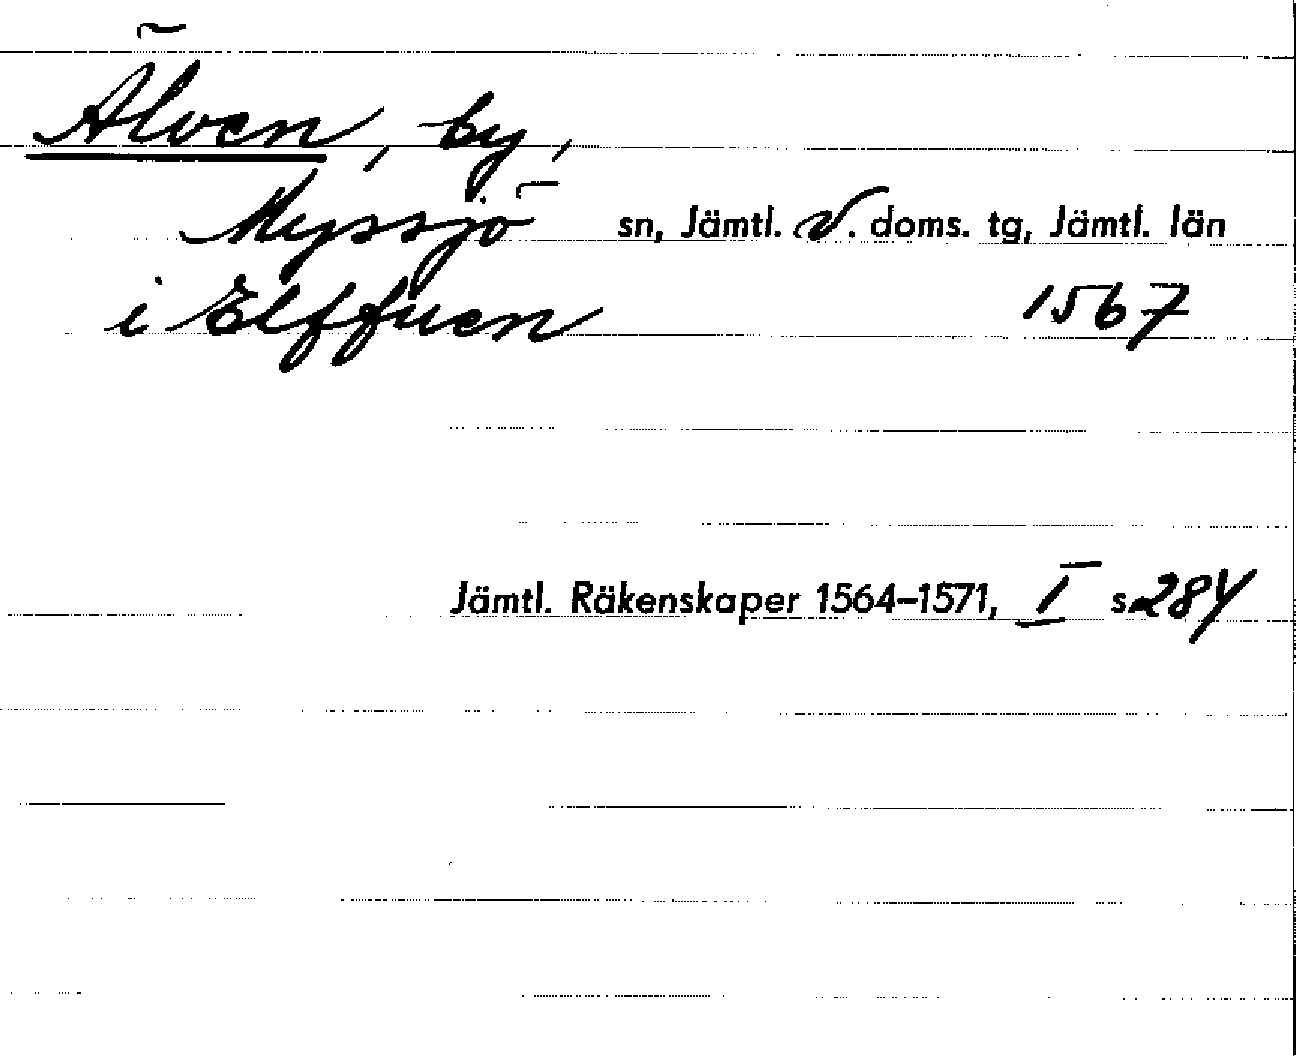 Älven, by,
Myssjö sn, Jämtl. v. doms. tg, Jämtl. län
i Elffuen 1567
Jämtl. Räkenskaper 1564–1571, I s. 284